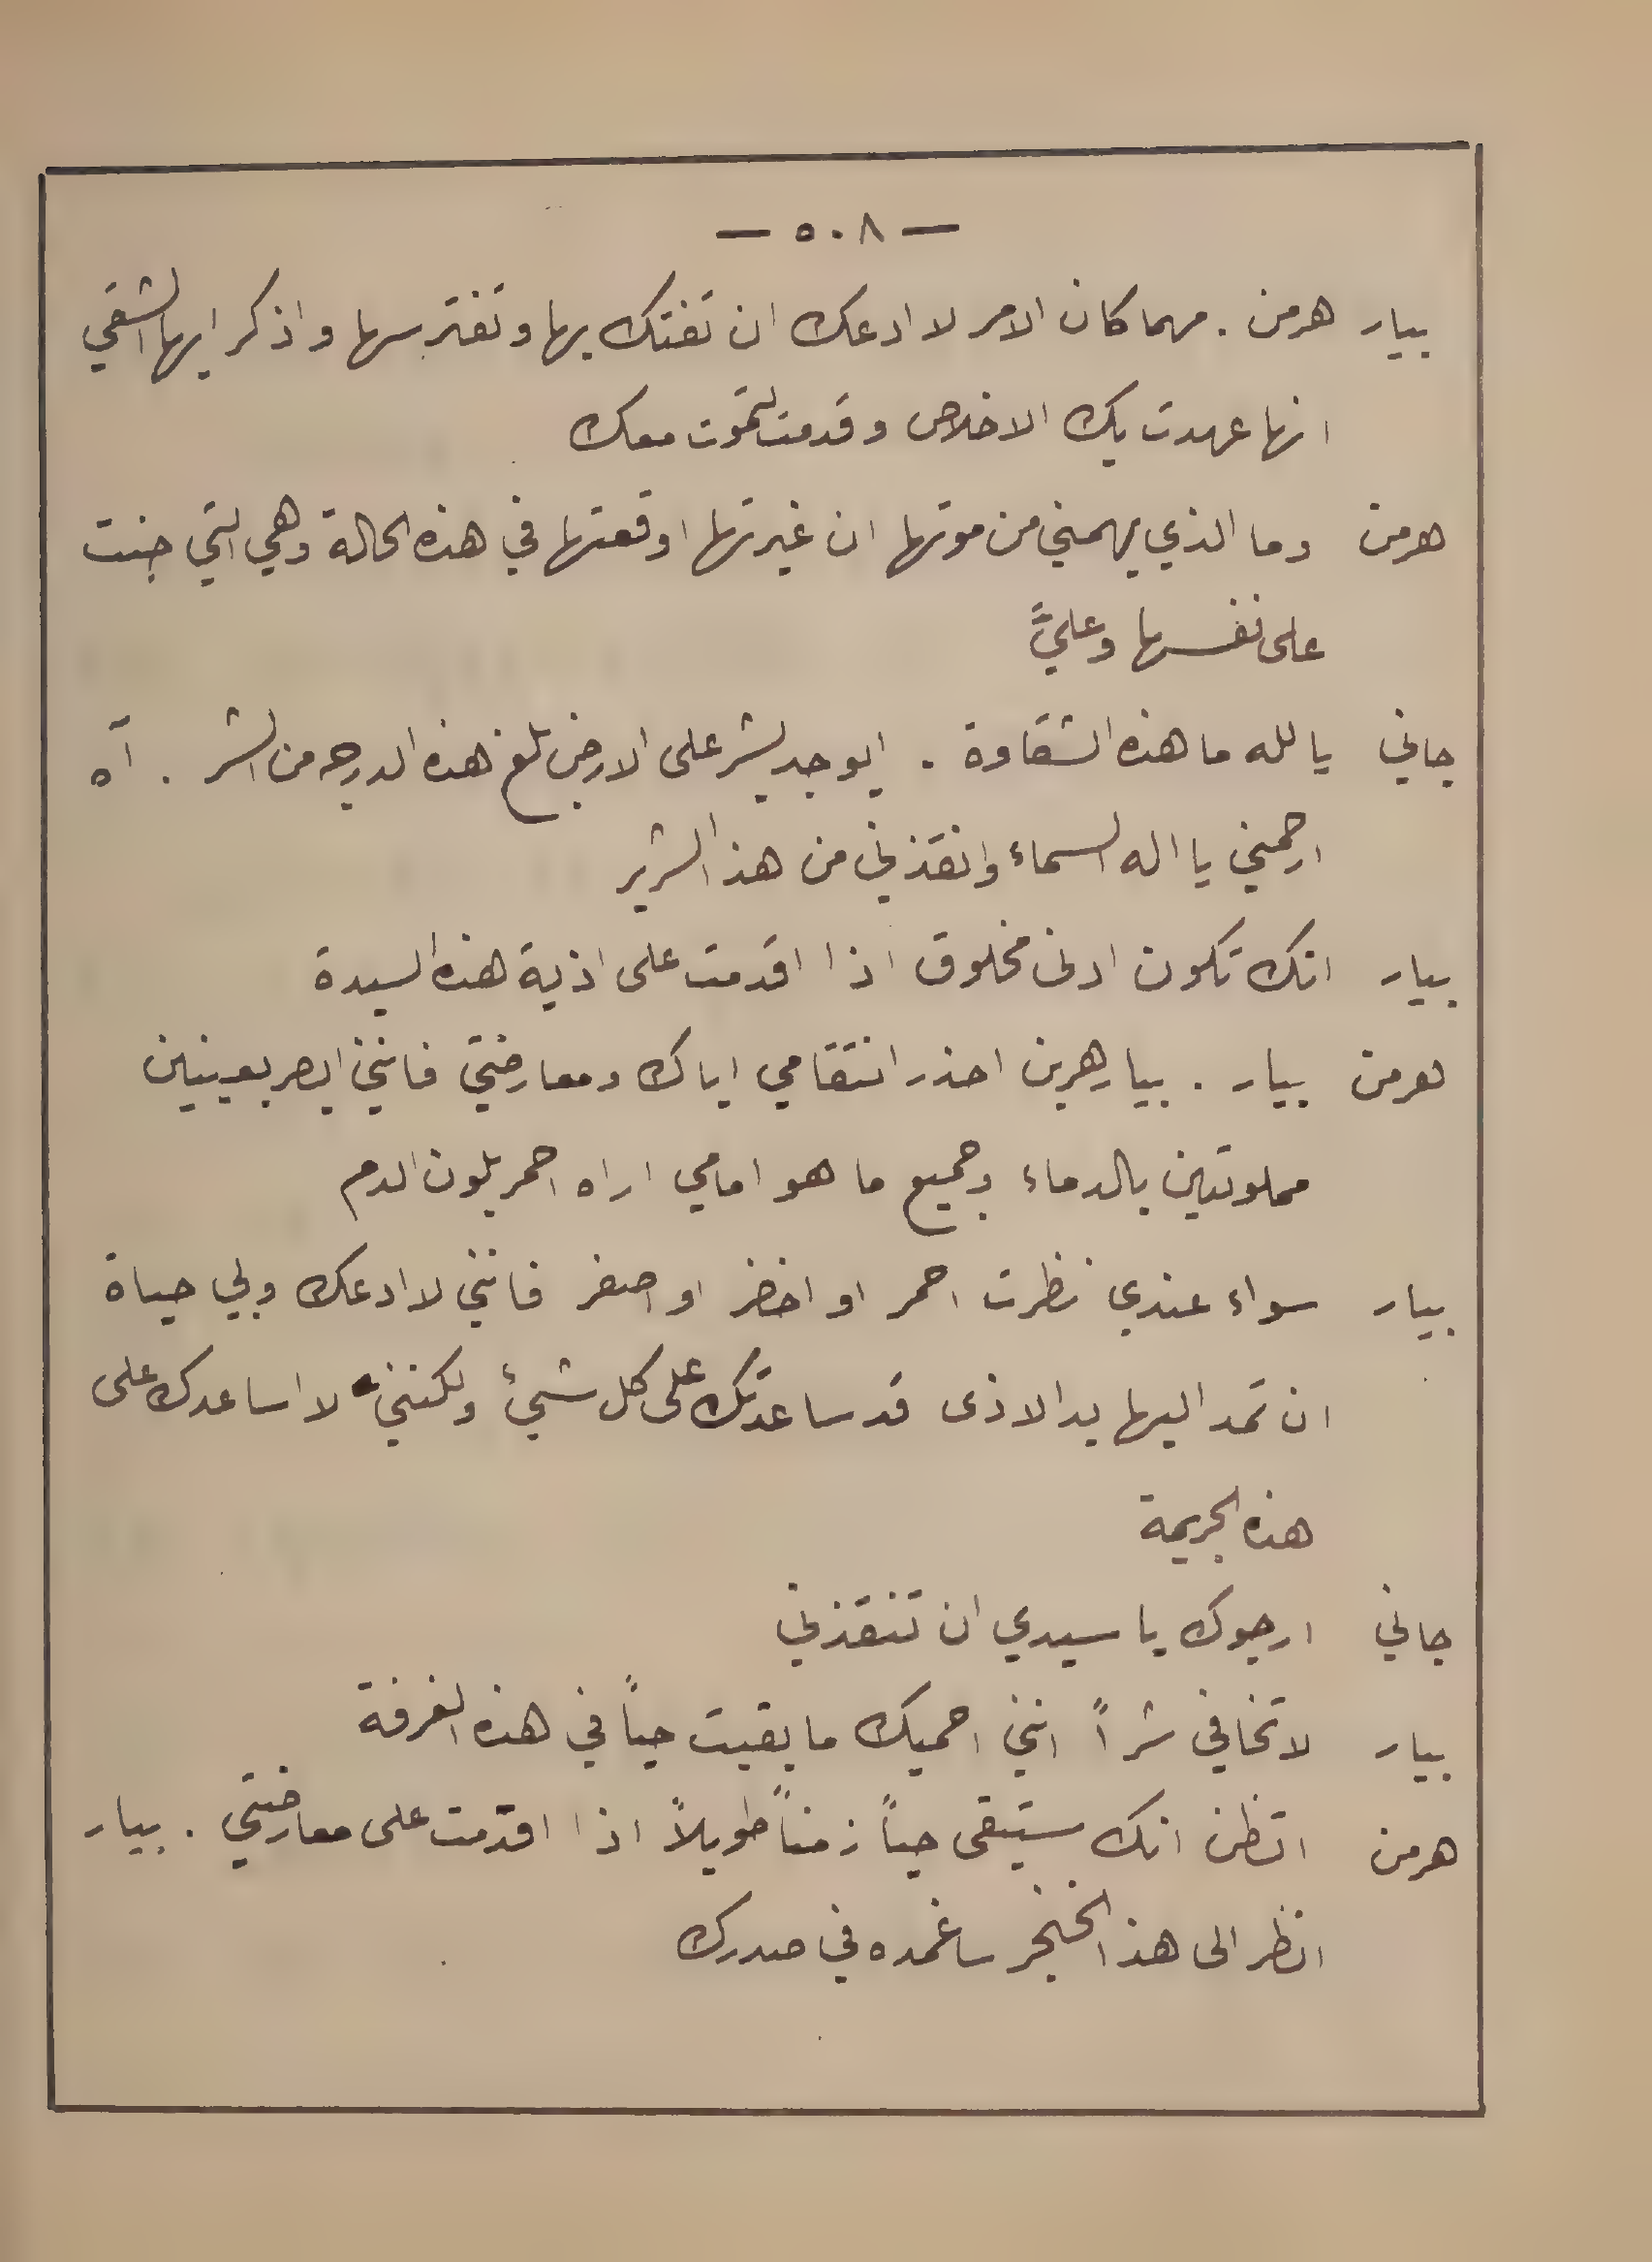 — ٥٠٨ —
بيار هرمن . مهما كان الامر لا ادعك ان تفتك بها وتفترسها واذكر ايها الشقي
انها عهدت بك الاخلاص وقدمت لتموت معك
هرمن وما الذي يهمني من موتها ان غيرتها اوقعتها في هذه الحالة وهي التي جنت
على نفسها وعليَّ
جاني يا لله ما هذه الشقاوة . ايوجد بشر على الارض بلغ هذه الدرجه من الشر . آه
ارحمني يا اله السماء وانقذني من هذا الشرير
بيار انك تكون ادنى مخلوق اذا اقدمت على اذية هذه السيدة
هرمن بيار . بيار هرين احذر انتقامي اياك ومعارضتي فانني ابصر بعينين
مملوئتين بالدماء وجميع ما هو امامي اراه احمر بلون الدم
بيار سواء عندي نظرت احمر او اخضر او اصفر فانني لا ادعك وبي حياة
ان تمد اليها يد الاذى قد ساعدتك على كل شيئ ولكنني لا اساعدك على
هذه الجريمة
جاني ارجوك يا سيدي ان تنقذني
بيار لا تخافي شراً انني احميك ما بقيت حياً في هذه الغرفة
هرمن اتظن انك ستبقى حياً زمناً طويلاً اذا اقدمت على معارضتي . بيار
انظر الى هذا الخنجر ساغمده في صدرك